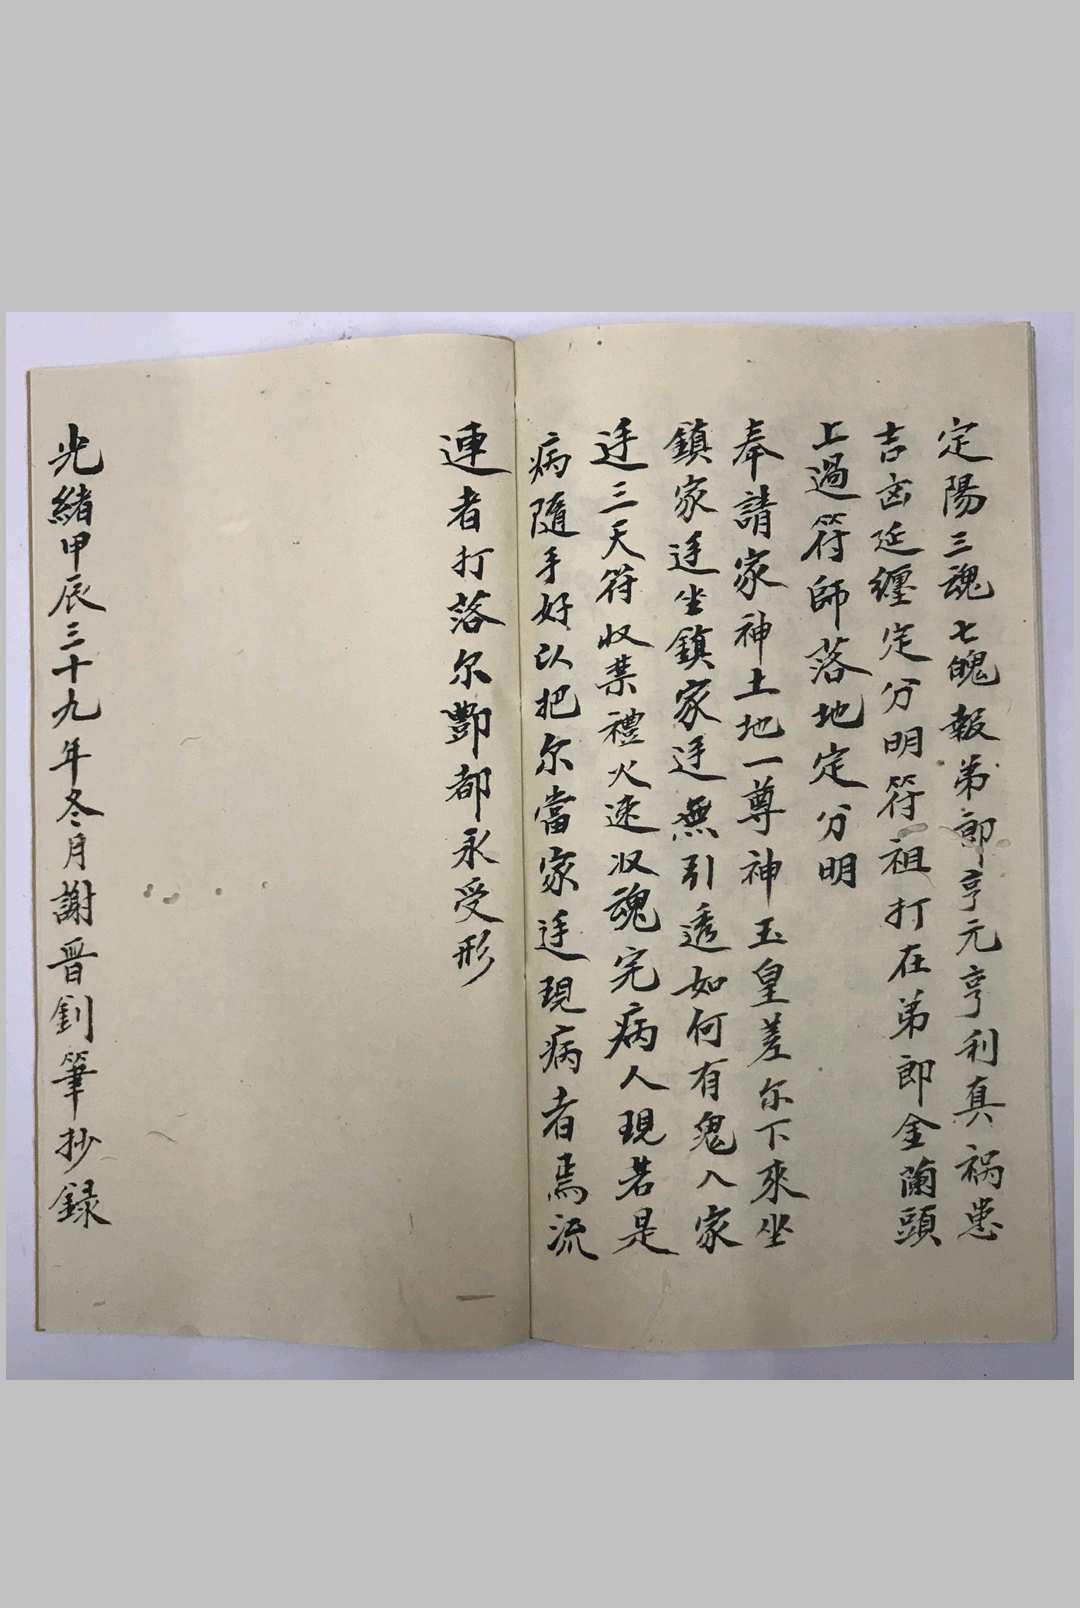 定陽三魂七魄報弟郎亨元亨利真禍患
吉凶延纏定分明符祖打在弟郎金蘭頭
上過符師落地定分明
奉請家神土地一尊神玉皇差尔下來坐
鎮家迬坐鎮家迬無引透如何有鬼入家
迬三天符收禁禮火速收魂完病人現若是
病隨手好以把尔當家迬現病者焉流
連者打落尔酆都永受形
光緒甲辰三十九年冬月謝晋釗筆抄録